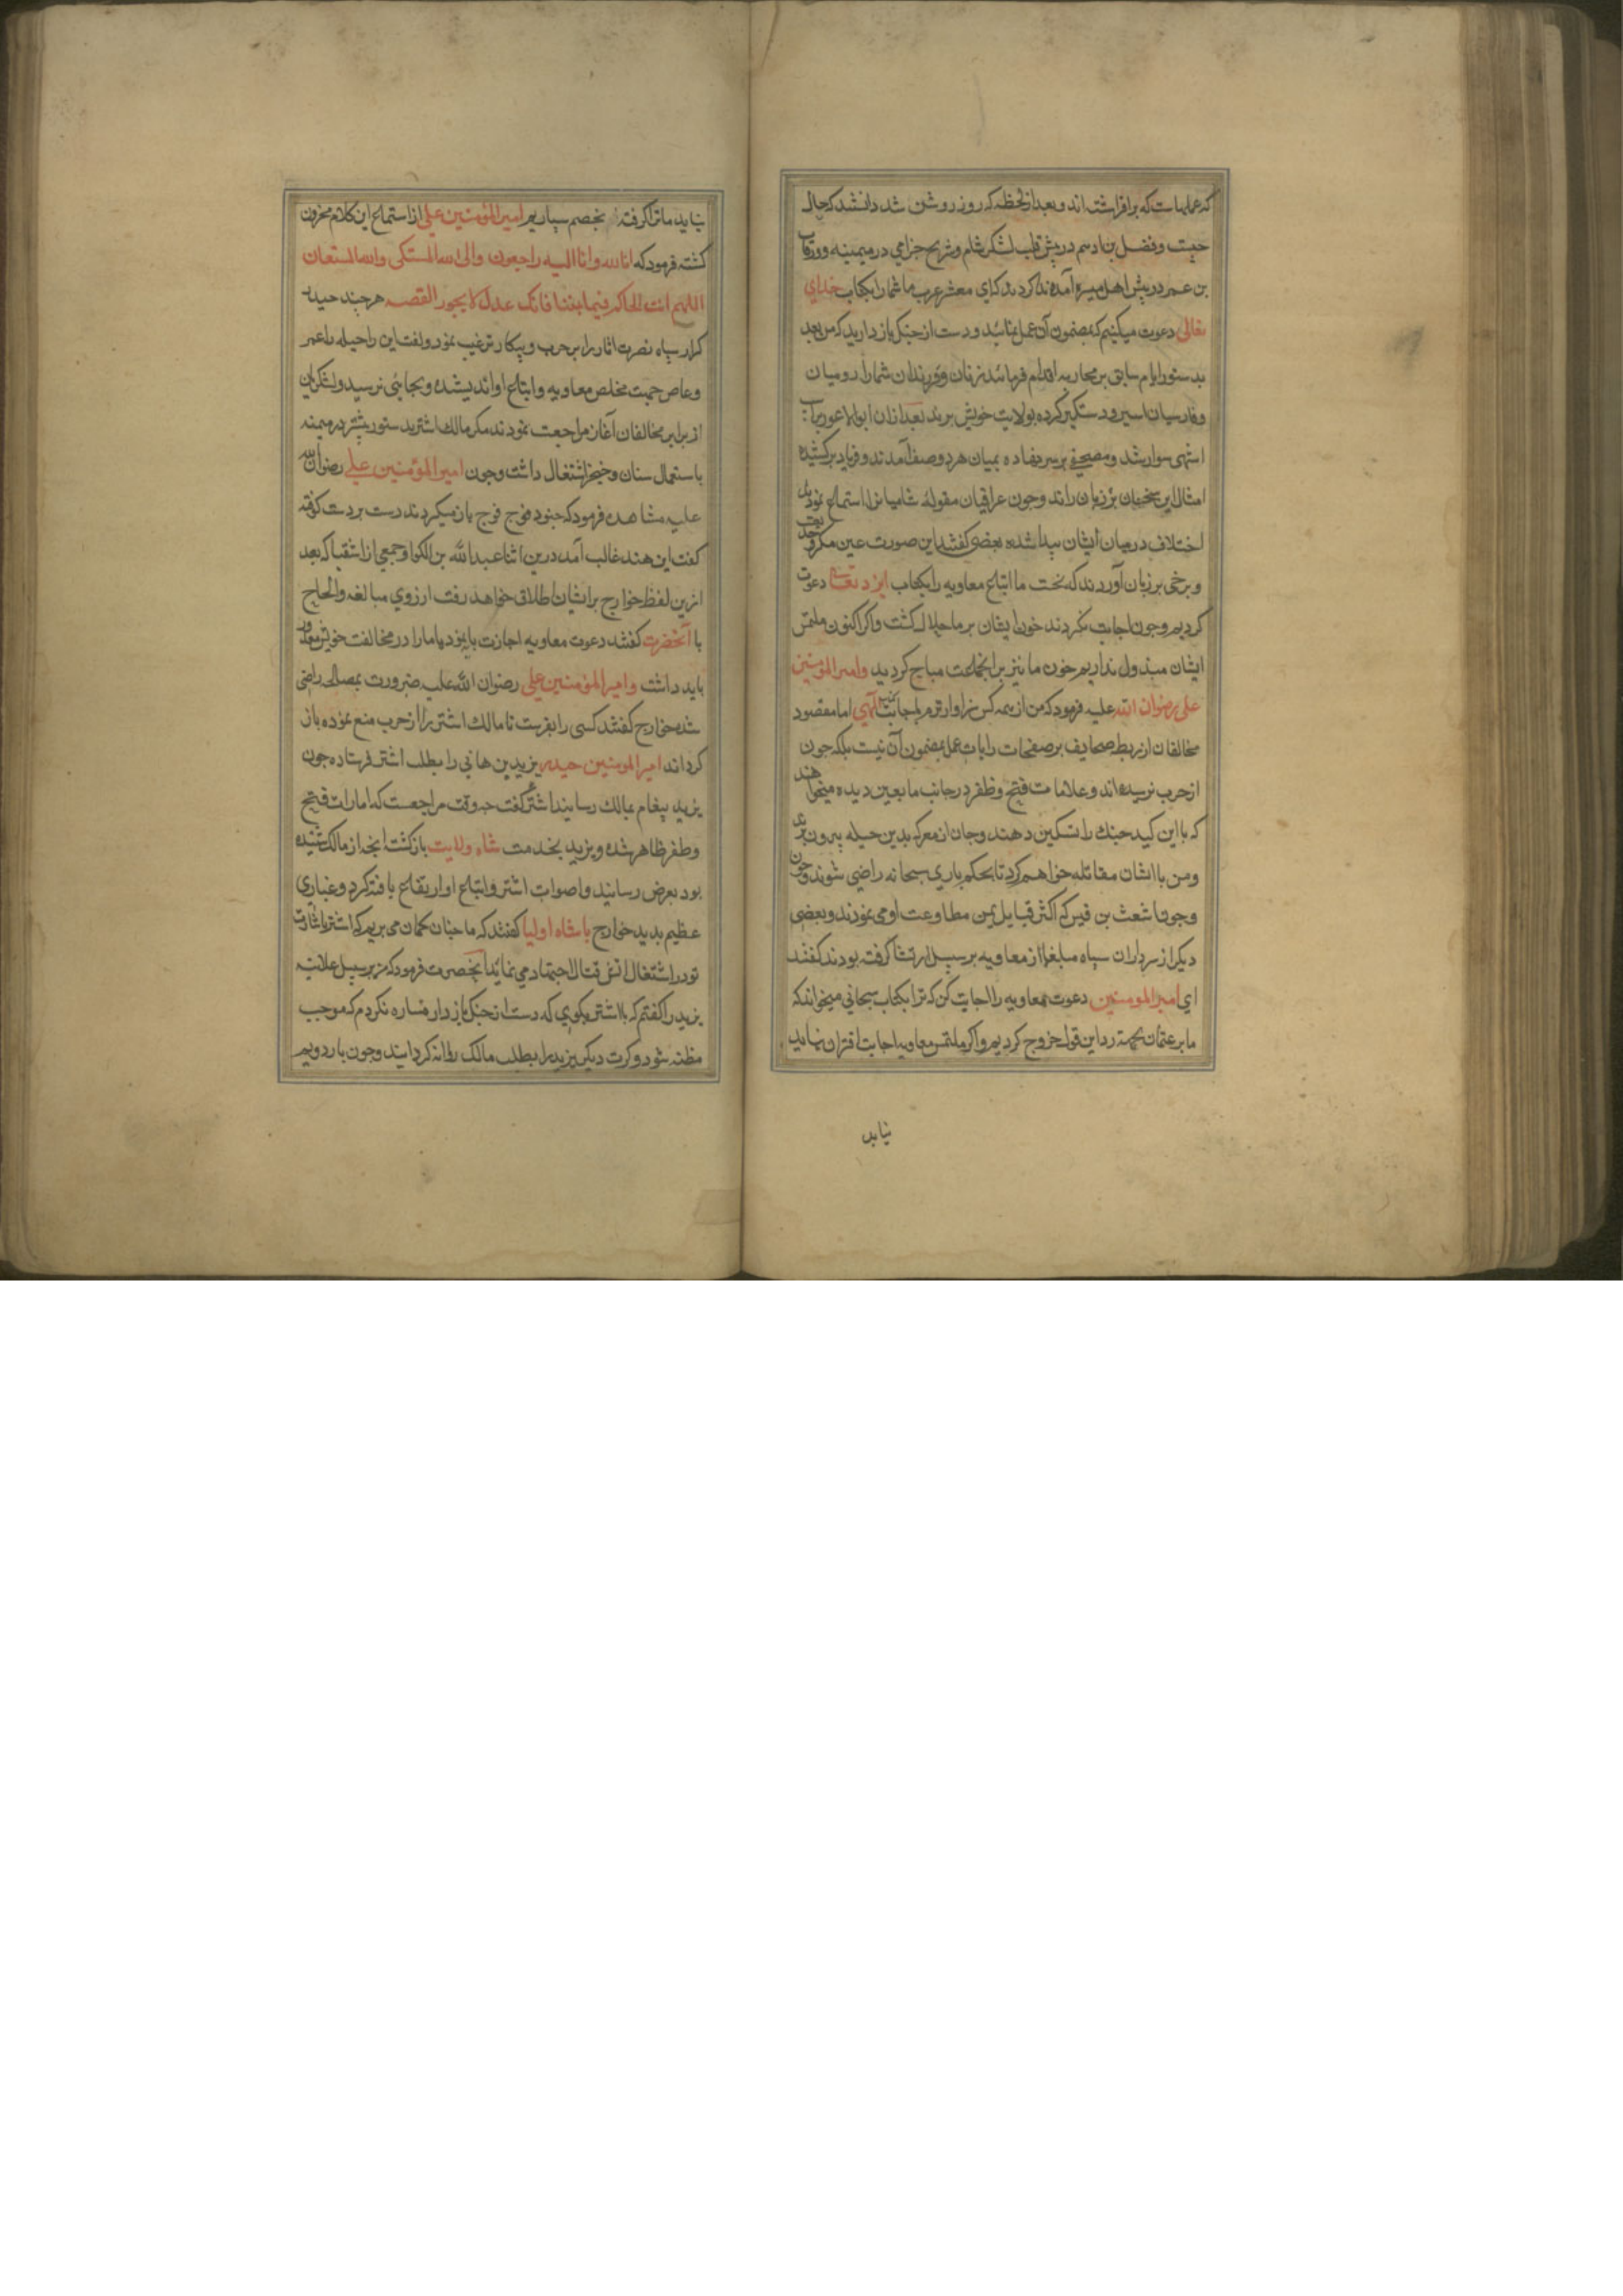 که علمهاست که برافراشته اند و بعد از لحظه که روز روشن شد دانستند که حال
چیست و فضل بن ادهم در پیش قلب لشکر شام و شریح جزامی در میمنه و ورقاء
بن عمر در پیش اهل میسره آمده ندا کردند که ای معشر عرب ما شما را بکتاب خدای
تعالی دعوت میکنیم که بمضمون آن عمل نمائید و دست از جنک باز دارید که من بعد
بدستور ایام سابق بر محاربه اقدام فرمائید زنان و فرزندان شما را رومیان
و فارسیان اسیر و دستکیر کرده بولایت خویش برند بعد ازان ابوالاعور بر
اشهی سوار شد و مصحفی بر سر نهاده بمیان هر دو صف آمدند و فریاد برکشیده
امثال این سخنان بر زبان راند و چون عراقیان مقوله شامیانرا استماع نمودند
اختلاف درمیان ایشان پیدا شده بعضی کفتند این صورت عین مکر و
و برخی بر زبان آوردند که نخست ما اتباع معاویه را بکتاب ایزد تعالی دعوت
کردیم و چون اجابت نکردند خون ایشان بر ما حلال کشت و اکر اکنون ملتمس
ایشان مبذول نداریم خون ما نیز بر انجماعت مباح کردید و امیر المؤمنین
علی رضوان الله علیه فرمود که من از همه کس سزاوارترم باجابت کتاب آلهی اما مقصود
مخالفان از ربط صحایف بر صفحات رایات عمل بمضمون آن نیست بلکه چون
از حرب ترسیده اند و علامات فتح و ظفر در جانب ما بعین دیده میخواهند
که با این کید جنک را تسکین دهند و جان از معرکه بدین حیله بیرون برند
و من با ایشان مقاتله خواهم کرد تا بحکم باری سبحانه راضی شوند و چون
و چون اشعث بن قیس که اکثر قبایل یمن مطاوعت او می نمودند و بعضی
دیکر از سرداران سپاه مبلغها از معاویه بر سبیل ارتشا کرفته بودند کفتند
ای امیر المؤمنین دعوت معاویه را اجابت کن که ترا بکتاب سبحانی میخواند که
ما بر عثمان بجهة رد این قول خروج کردیم و اکر ملتمس معاویه اجابت اقتران نیابد
نیابد
نیابد ما ترا کرفته بخصم سپاریم امیر المؤمنین علی از استماع این کلام محزون
کشته فرمود که انا لله وانا الیه راجعون والی الله المشتکی والله المستعان
اللهم انت الحاکم فیما بیننا فانک عدل لا یجور القصه هرچند حیدر
کرار سپاه نصرت اثار را بر حرب و پیکار ترغیب نمود و کفت این را حیله را عمر
و عاص جهت مخلص معاویه و اتباع او اندیشیده و بجایی نرسید و لشکریان
از برابر مخالفان آغاز مراجعت نمودند مکر مالک اشتر بدستور پیشتر در میمنه
باستعمال سنان و خنجر اشتغال داشت و چون امیر المؤمنین علی رضوان الله
علیه مشاهده فرمود که جنود فوج فوج باز میکردند دست بر دست کوفته
کفت ابن هند غالب آمد درین اثنا عبد الله بن الکوا و جمعی از اشقیا که بعد
ازین لفظ خوارج بر ایشان اطلاق خواهد رفت از روی مبالغه و الحاح
با آنحضرت کفتند دعوت معاویه اجازت باید نمود یا ما را در مخالفت خویش معذور
باید داشت و امیر المؤمنین علی رضوان الله علیه ضرورت بمصالحه راضی
شده خوارج کفتند کسی را بفرست تا مالک اشتر را از حرب منع نموده باز
کرداند امیر المومنین حیدر یزید بن هانی را بطلب اشتر فرستاده چون
یزید پیغام بمالک رسانید اشتر کفت چه وقت مراجعست که امارات فتح
و ظفر ظاهر شده و یزید بخدمت شاه ولایت باز کشت انچه از مالک شنیده
بود بعرض رسانید و اصوات اشتر و اتباع او ارتفاع یافته کرد و غباری
عظیم بدید خوارج با شاه اولیا کفتند که ما چنان کمان می بریم که اشتر باشارت
تو در اشتغال اتش قتال اجتهاد می نماید آنحضرت فرمود که من بر سبیل علانیه
یزید را کفتم که با اشتر بکوی که دست از جنک باز دار مساره نکردم که موجب
مظنه شود و کرت دیکر یزید را بطلب مالک روانه کردانیدند و چون یار دویم